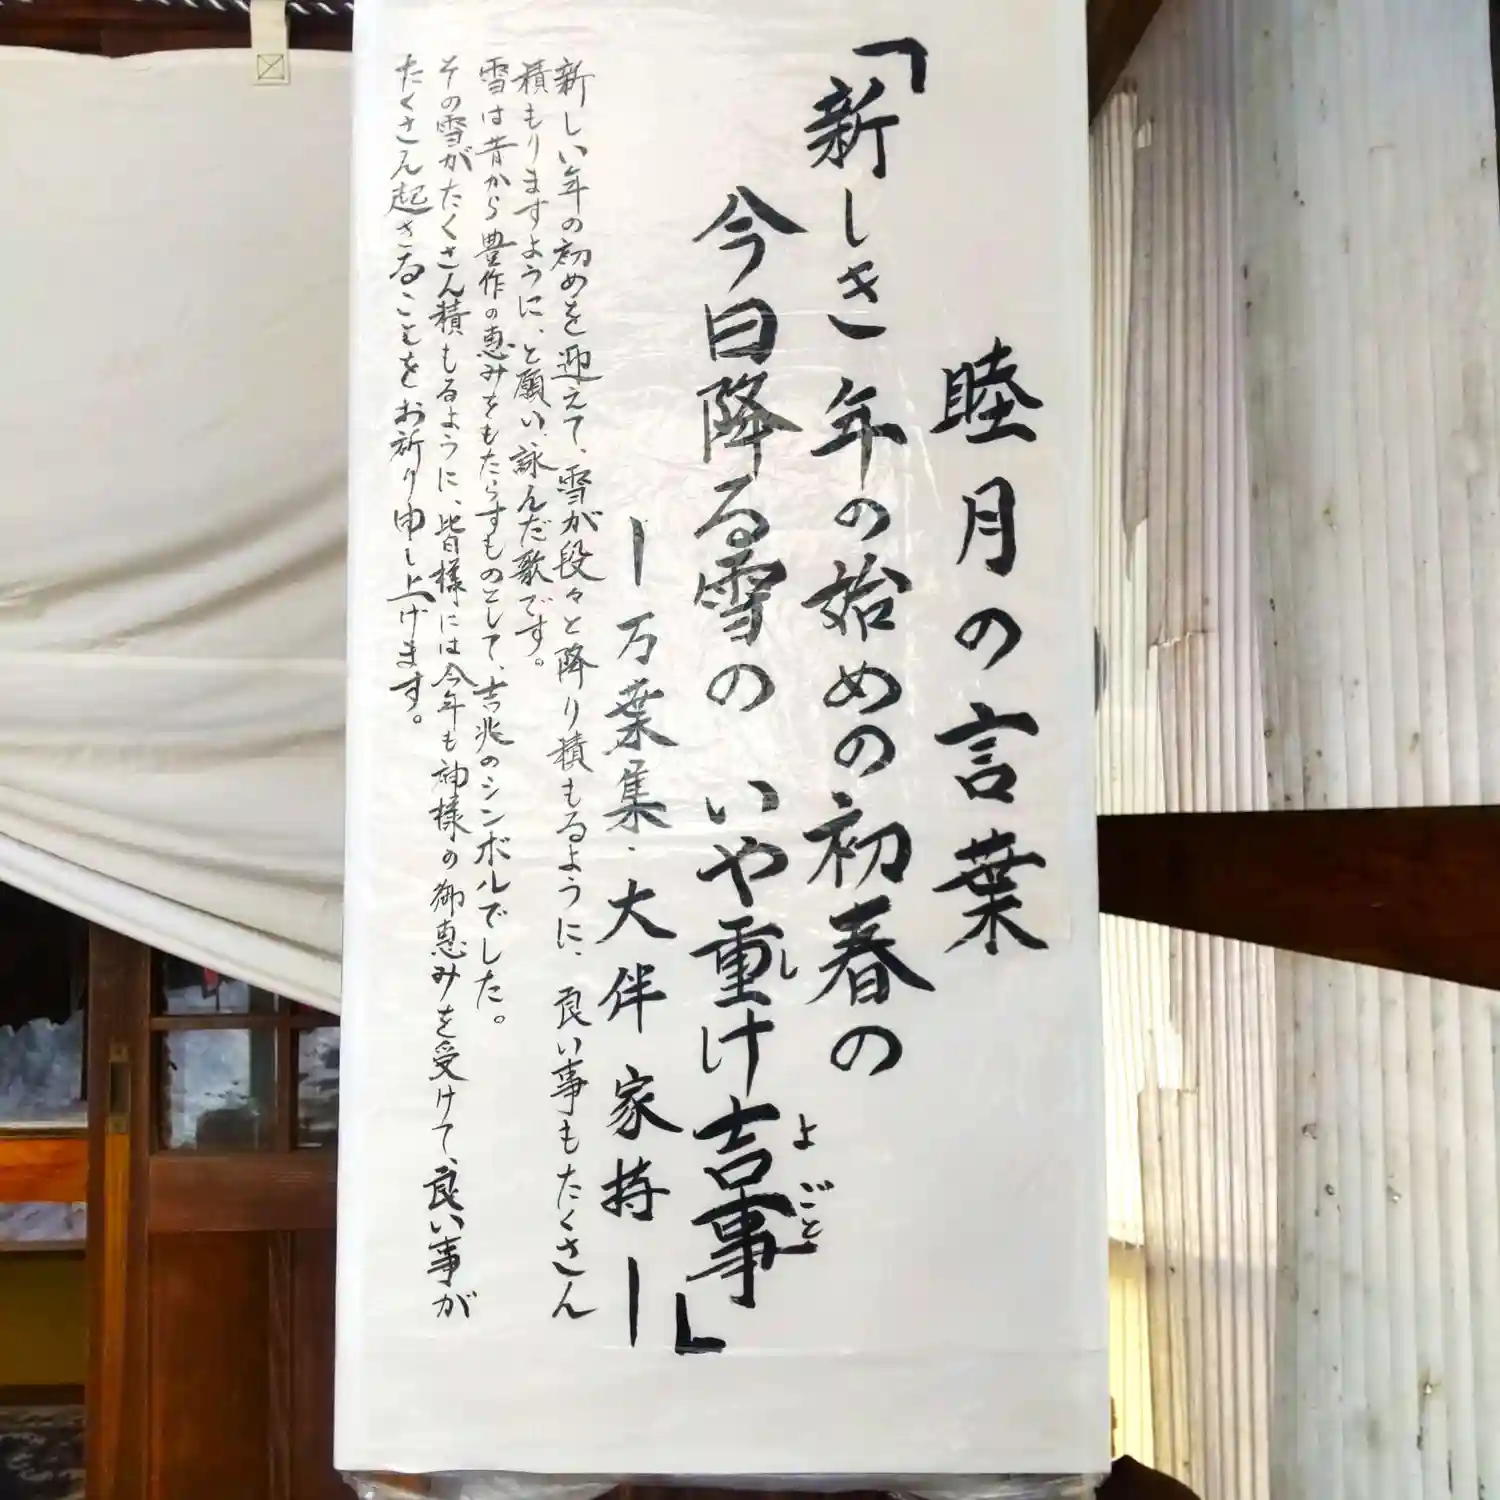 睦月の言葉
「新しき年の始めの初春の
今日降る雪の いや重け吉事」
し
よごと
―万葉集・大伴家持―
新しい年の初めを迎えて、雪が段々と降り積もるように、良い事もたくさん
積もりますように、と願い、詠んだ歌です。
雪は昔から豊作の恵みをもたらすものとして、吉兆のシンボルでした。
その雪がたくさん積もるように、皆様には今年も神様の御恵みを受けて、良い事が
たくさん起きることをお祈り申し上げます。